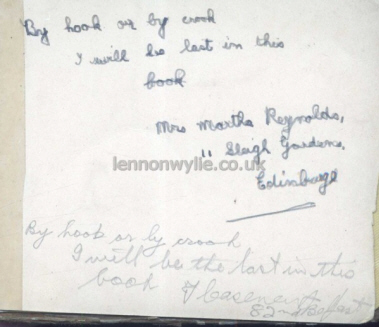 By hook or by crook
I will be last in this
book
Mrs Martha Reynolds,
11 Sleigh Gardens.
Edinburgh
lennonwylie.co.uk
By hook or by crook
I will be the last in this
book